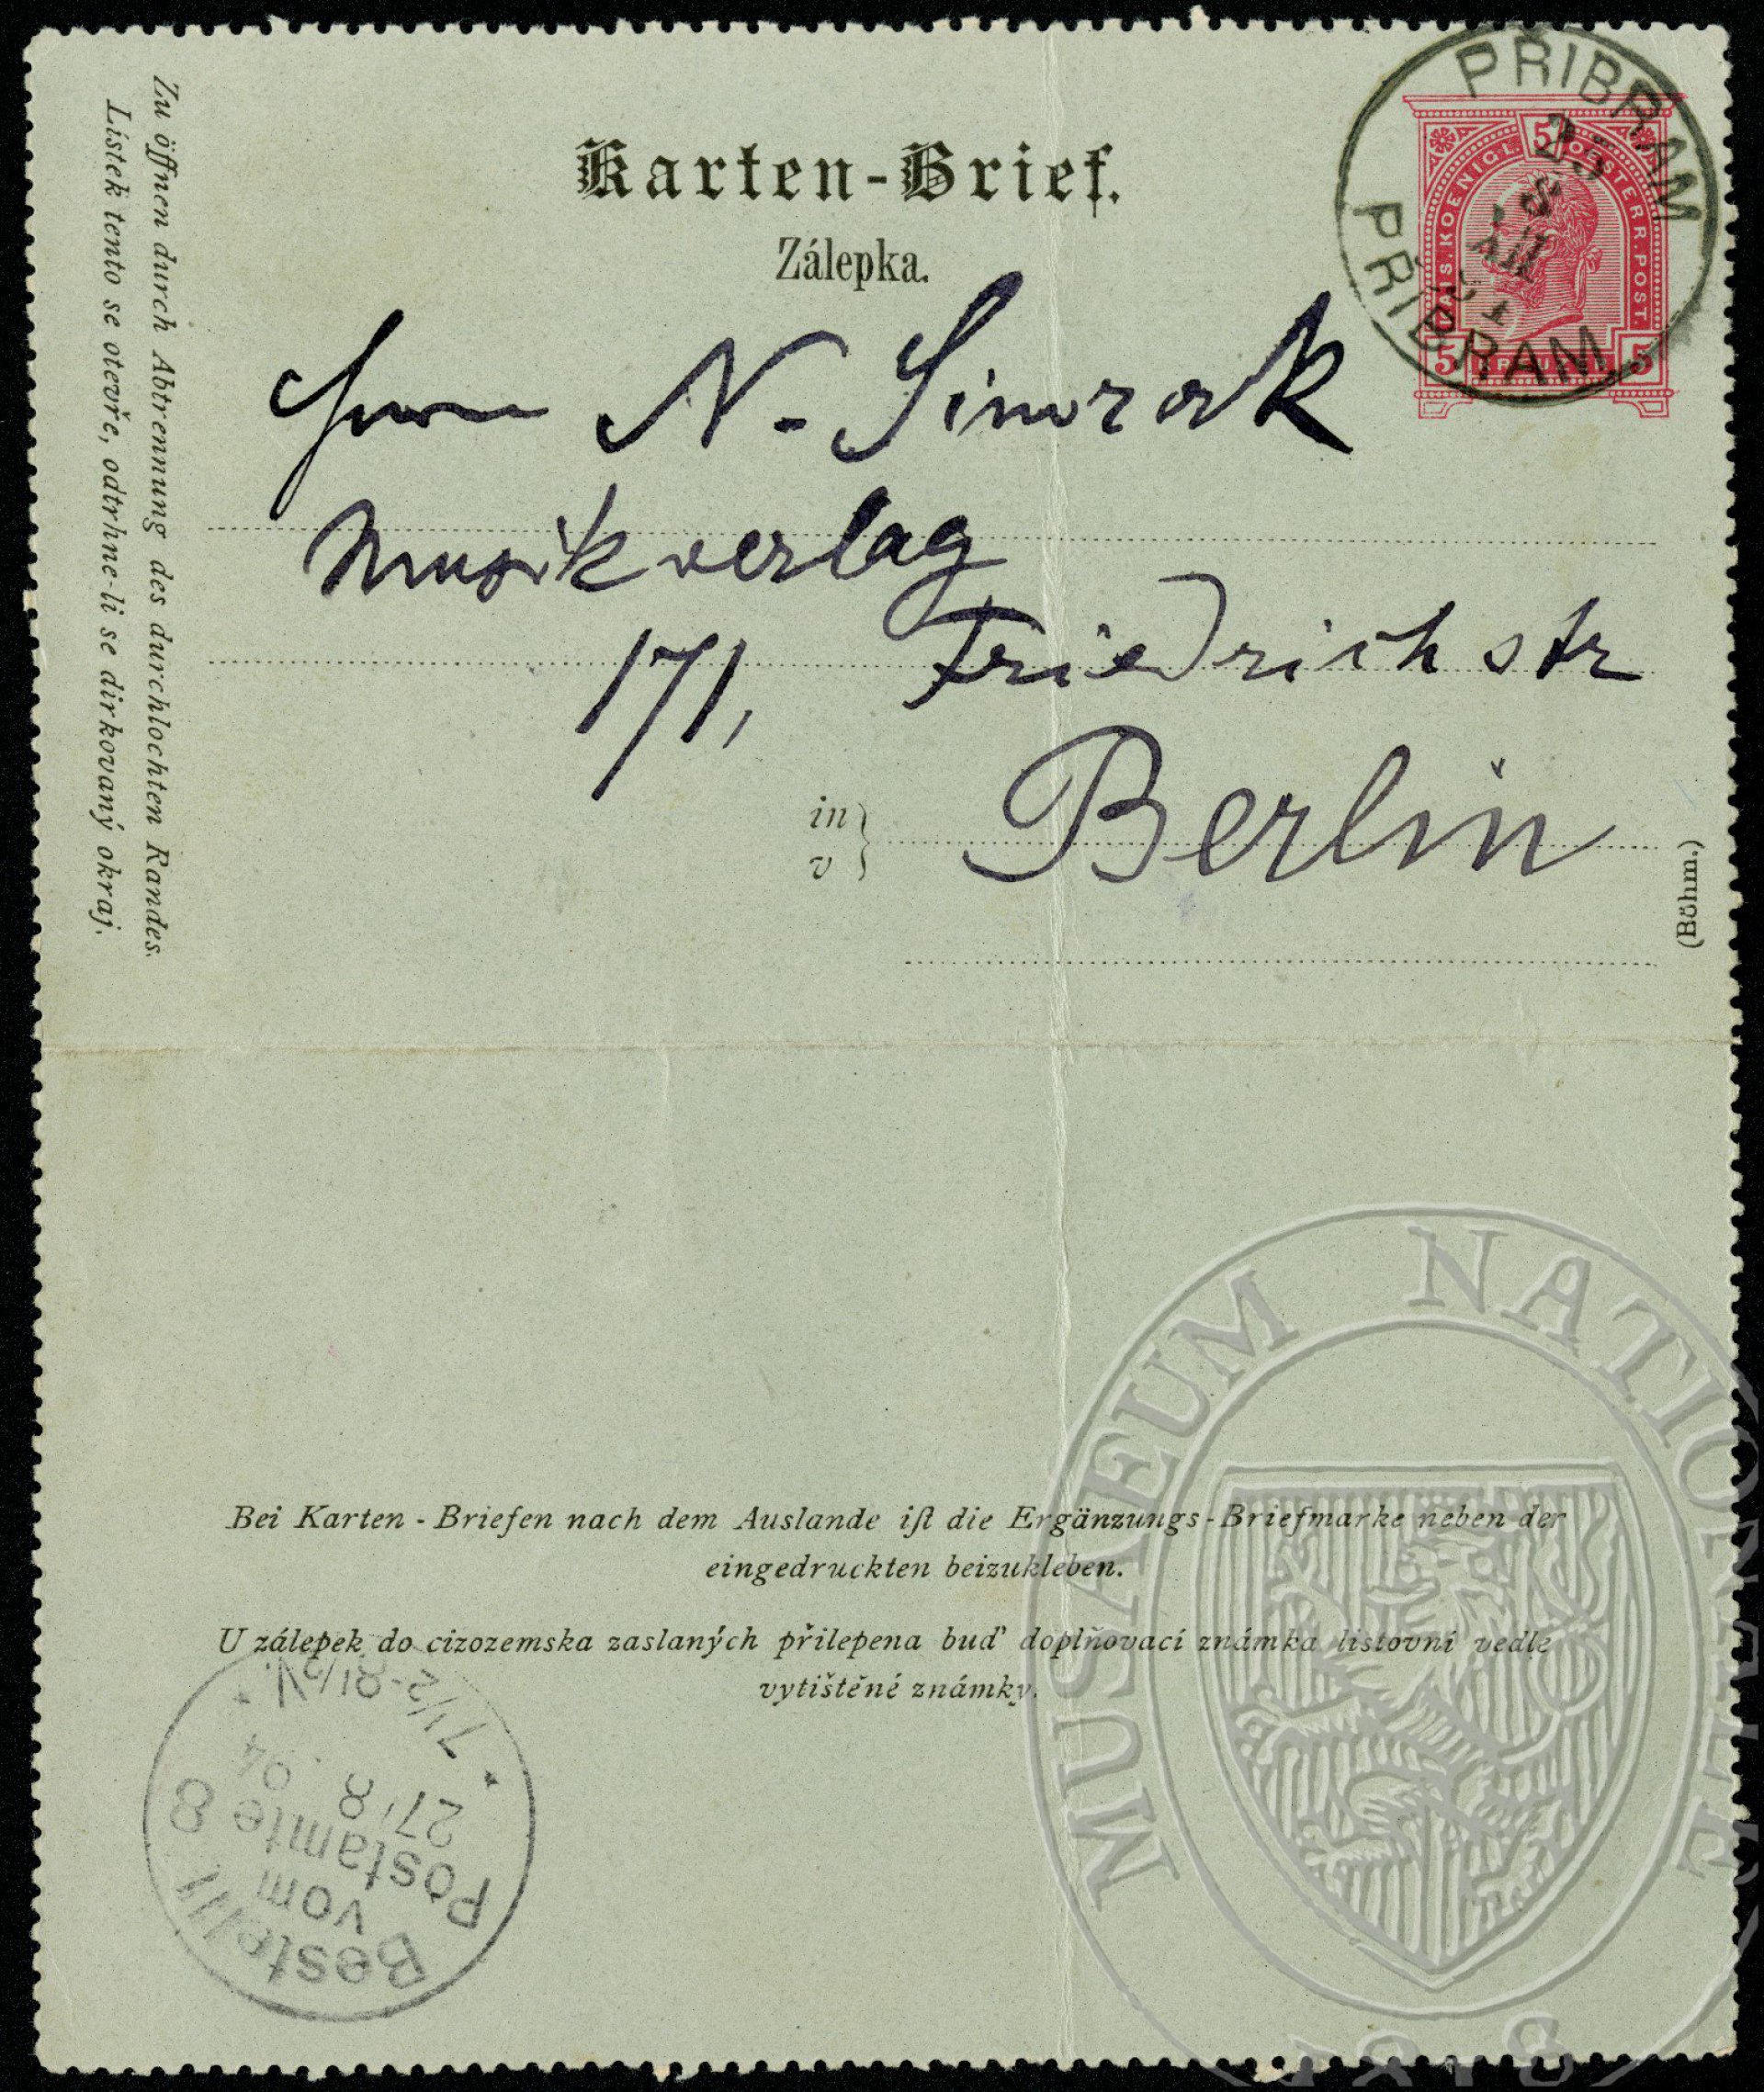 Karten-Brief.
Zálepka.
PŘIBRAM
25
8
PŘIBRAM
KAIS. KOENIGL. OESTERR. POST.
5
5 5
Zu öffnen durch Abtrennung des durchlochten Randes.
Lístek tento se otevře, odtrhne-li se dirkovaný okraj.
Herrn N. Simrock
Musikverlag
171, Friedrichstr
in
v
Berlin
(Böhm.)
Bei Karten-Briefen nach dem Auslande iſt die Ergänzungs-Briefmarke neben der
eingedruckten beizukleben.
U zálepek do cizozemska zaslaných přilepena buď doplňovací známka listovní vedle
vytištěné známky.
Bestellt
vom
Postamte 8
27/8 . 94
7 1/2-8 1/2 V.
MUSAEUM NATIONALE
1818